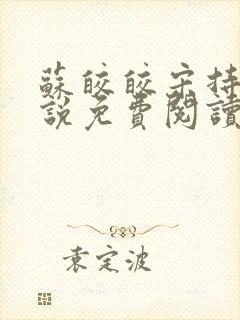 蘇皎皎宋持
說免費閱讀
袁定波